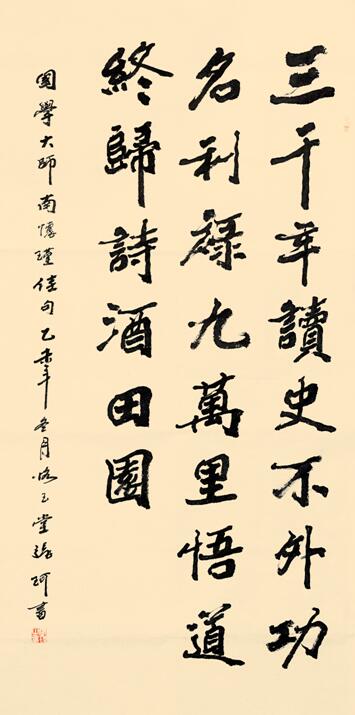 三千年讀史不外功
名利祿九萬里悟道
終歸詩酒田園
國學大師南懷瑾佳句乙未年冬月堂張珂書